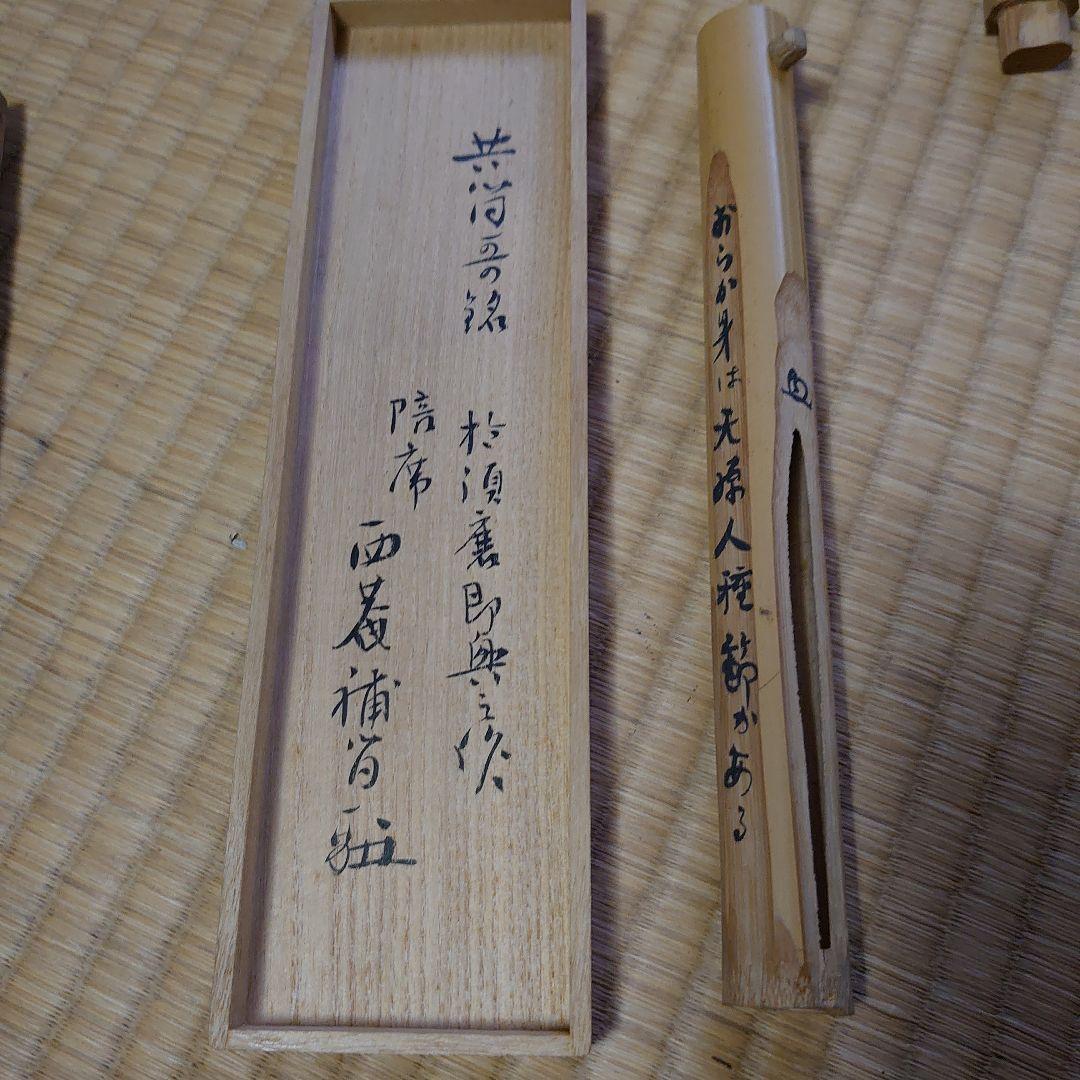 共筒哥銘 於須磨即興之作
陪席 西菴補筒
おらか身は天源人種節かある